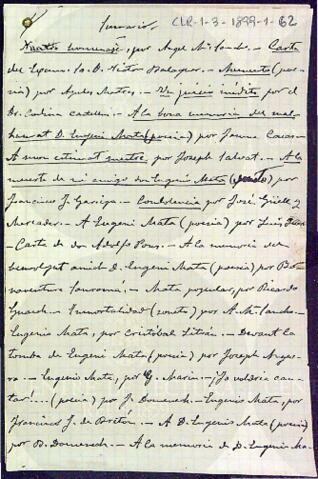 Sumario
CLR-1-3-1899-1-62
Nuestro homenaje, por Angel Mª Samb. — Carta
del Excmo. Sr. D. Victor Balaguer. — Memento (poe-
sia) por Apeles Mestres. — Un juicio inedito por el
Dr. Codina Castellvi. — A la bona memoria del mal-
henat D. Eugeni Mata (poesia) por Jaume
A mon estimat mestre, por Joseph Salvat. — A la
muerte de mi amigo Don Eugenio Mata por
Francisco J. Garriga. — Condolencia por José Güell y
Mercader. — A Eugeni Mata (poesia) por Lluis
— Carta de don Adolfo Pons. — A la memoria del
benvolgut amich D. Eugeni Mata (poesia) por Bo-
naventura — Mata popular, por Ricardo
Guasch. — Inmortalidad por A. M.
Eugenio Mata, por Cristóbal Litrán. — Devant la
tomba de Eugeni Mata (poesia) por Joseph
— Eugenio Mata, por G. Marin. — ¡Jo voldria can-
tar!... (poesia) por J. Domenech. — Eugenio Mata, por
Francisco J. de Bretón. — A D. Eugenio Mata (poesia)
por B. Domenech. — A la memoria de D. Eugenio Ma-